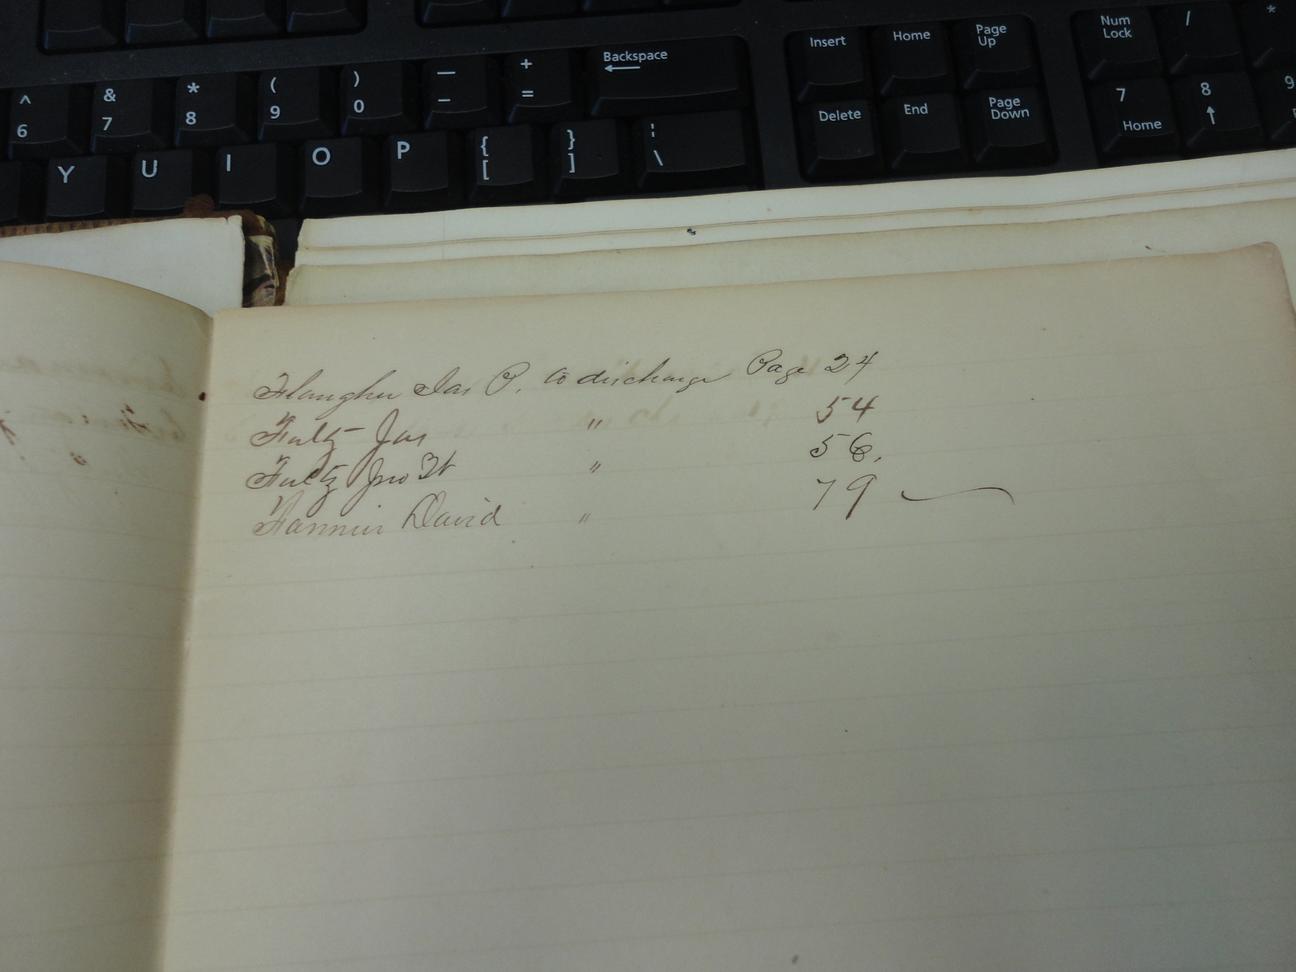 Insert Home Page Up Num Lock / *
^ 6 & 7 * 8 ( 9 ) 0 — - + = Backspace
Delete End Page Down 7 Home 8 9
Y U I O P { [ } ] ¦ \
Jas P. to discharge Page 24
Fultz Jas " 54
Fultz Jno W " 56.
Fannin David " 79